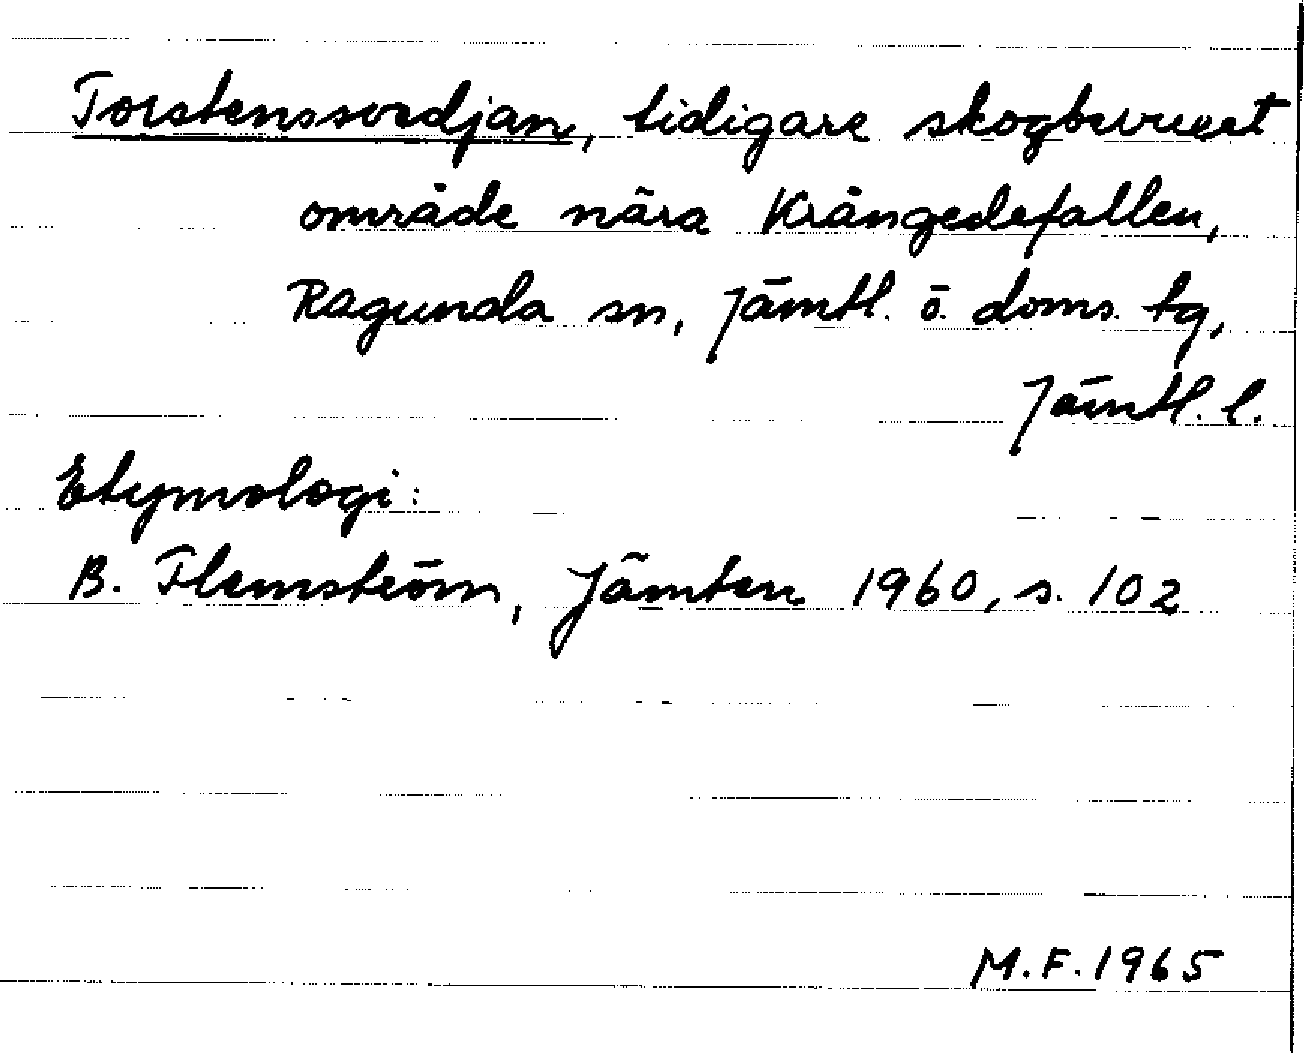 Torstenssvedjan, tidigare skogbevuxet
område nära Krångedefallen,
Ragunda sn, Jämtl. ö. doms. tg,
Jämtl. l.
Etymologi:
B. Flemström, Jämten 1960, s. 102
M.F. 1965